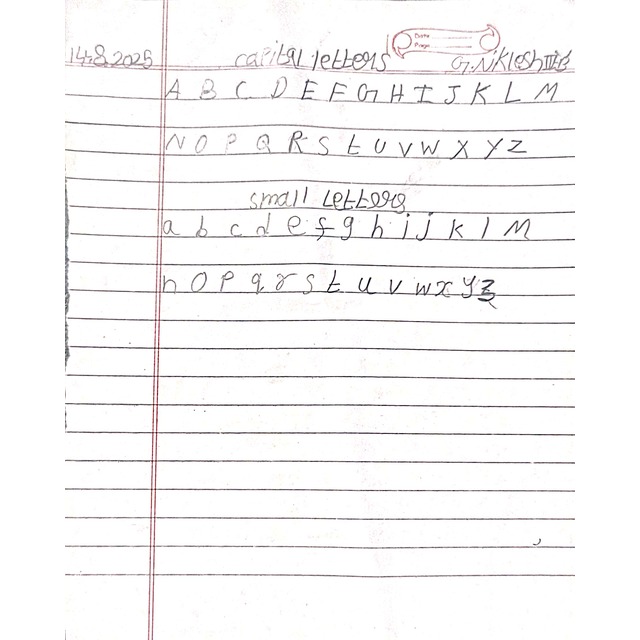 Date
Page
14.8.2025 capital letters G.Niklesh
A B C D E F G H I J K L M
N O P Q R S t U V W X Y Z
small letters
a b c d e f g h i j k l M
n O P q r s t u v w x y z